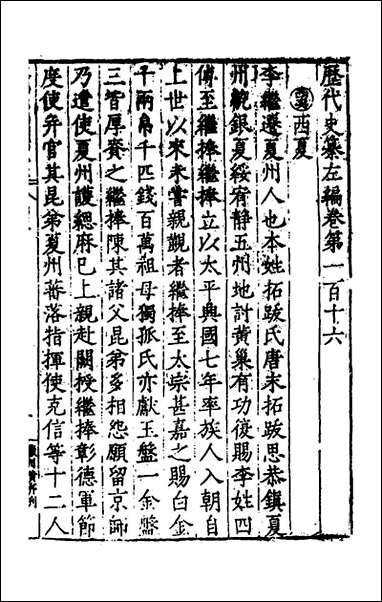 歷代史纂左編卷第一百十六
西夏
李繼遷夏州人也本姓拓跋氏唐末拓跋思恭鎮夏
州統銀夏綏宥靜五州地討黃巢有功復賜李姓四
傳至繼捧繼捧立以太平興國七年率族人入朝自
上世以來未嘗親覿者繼捧至太宗甚嘉之賜白金
千兩帛千匹錢百萬祖母獨孤氏亦獻玉盤一金盤
三皆厚賚之繼捧陳其諸父昆弟多相怨願留京師
乃遣使夏州護緦麻已上親赴闕授繼捧彰德軍節
度使并官其昆弟夏州蕃落指揮使克信等十二人